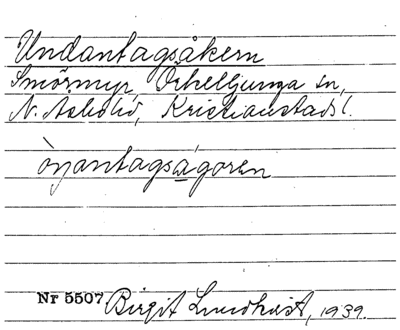 Undantagsåkern
Smörmyr, Örkelljunga sn,
N. Åsbo hd, Kristianstads l.
òŋantagsågoren
Nr 5507 Birgit Lundkvist, 1939.